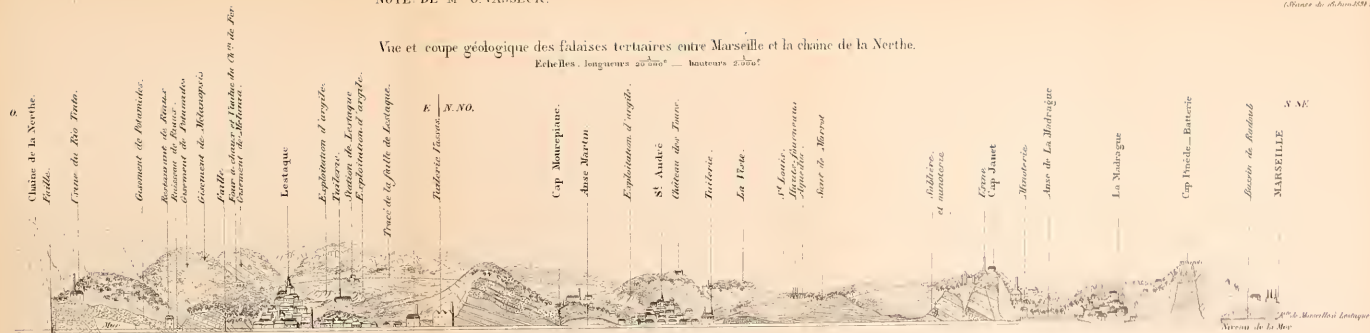 NOTE DE Mr G. VASSEUR.
(Séance du 18 Juin 1894)
Vue et coupe géologique des falaises tertiaires entre Marseille et la chaîne de la Nerthe.
Echelles. longueurs — hauteurs
O.
Chaîne de la Nerthe.
Faille.
Usine du Rio Tinto.
Gisement de Potamides.
Restaurant de Riaux
Ruisseau de Riaux.
Gisement de Potamides
Gisement de Melanopsis
Faille.
Four à chaux et Viaduc du Ch.in de Fer
Lestaque
Exploitation d'argile.
Tuilerie.
Station de Lestaque
Exploitation d'argile.
Tracé de la faille de Lestaque.
E
N.NO.
Tuilerie
Cap Mourepiane.
Anse Martin
Exploitation d'argile.
St André
Château des Tours.
Tuilerie.
La Viste.
St Louis.
Hauts-fourneaux
Sablière.
et minoterie
Usine
Cap Janet
Minoterie.
Anse de La Madrague
La Madrague
Cap Pinède_Batterie
Bassin de Radoub
MARSEILLE
N NE.
Mer
Rte de Marseille à Lestaque
Niveau de la Mer